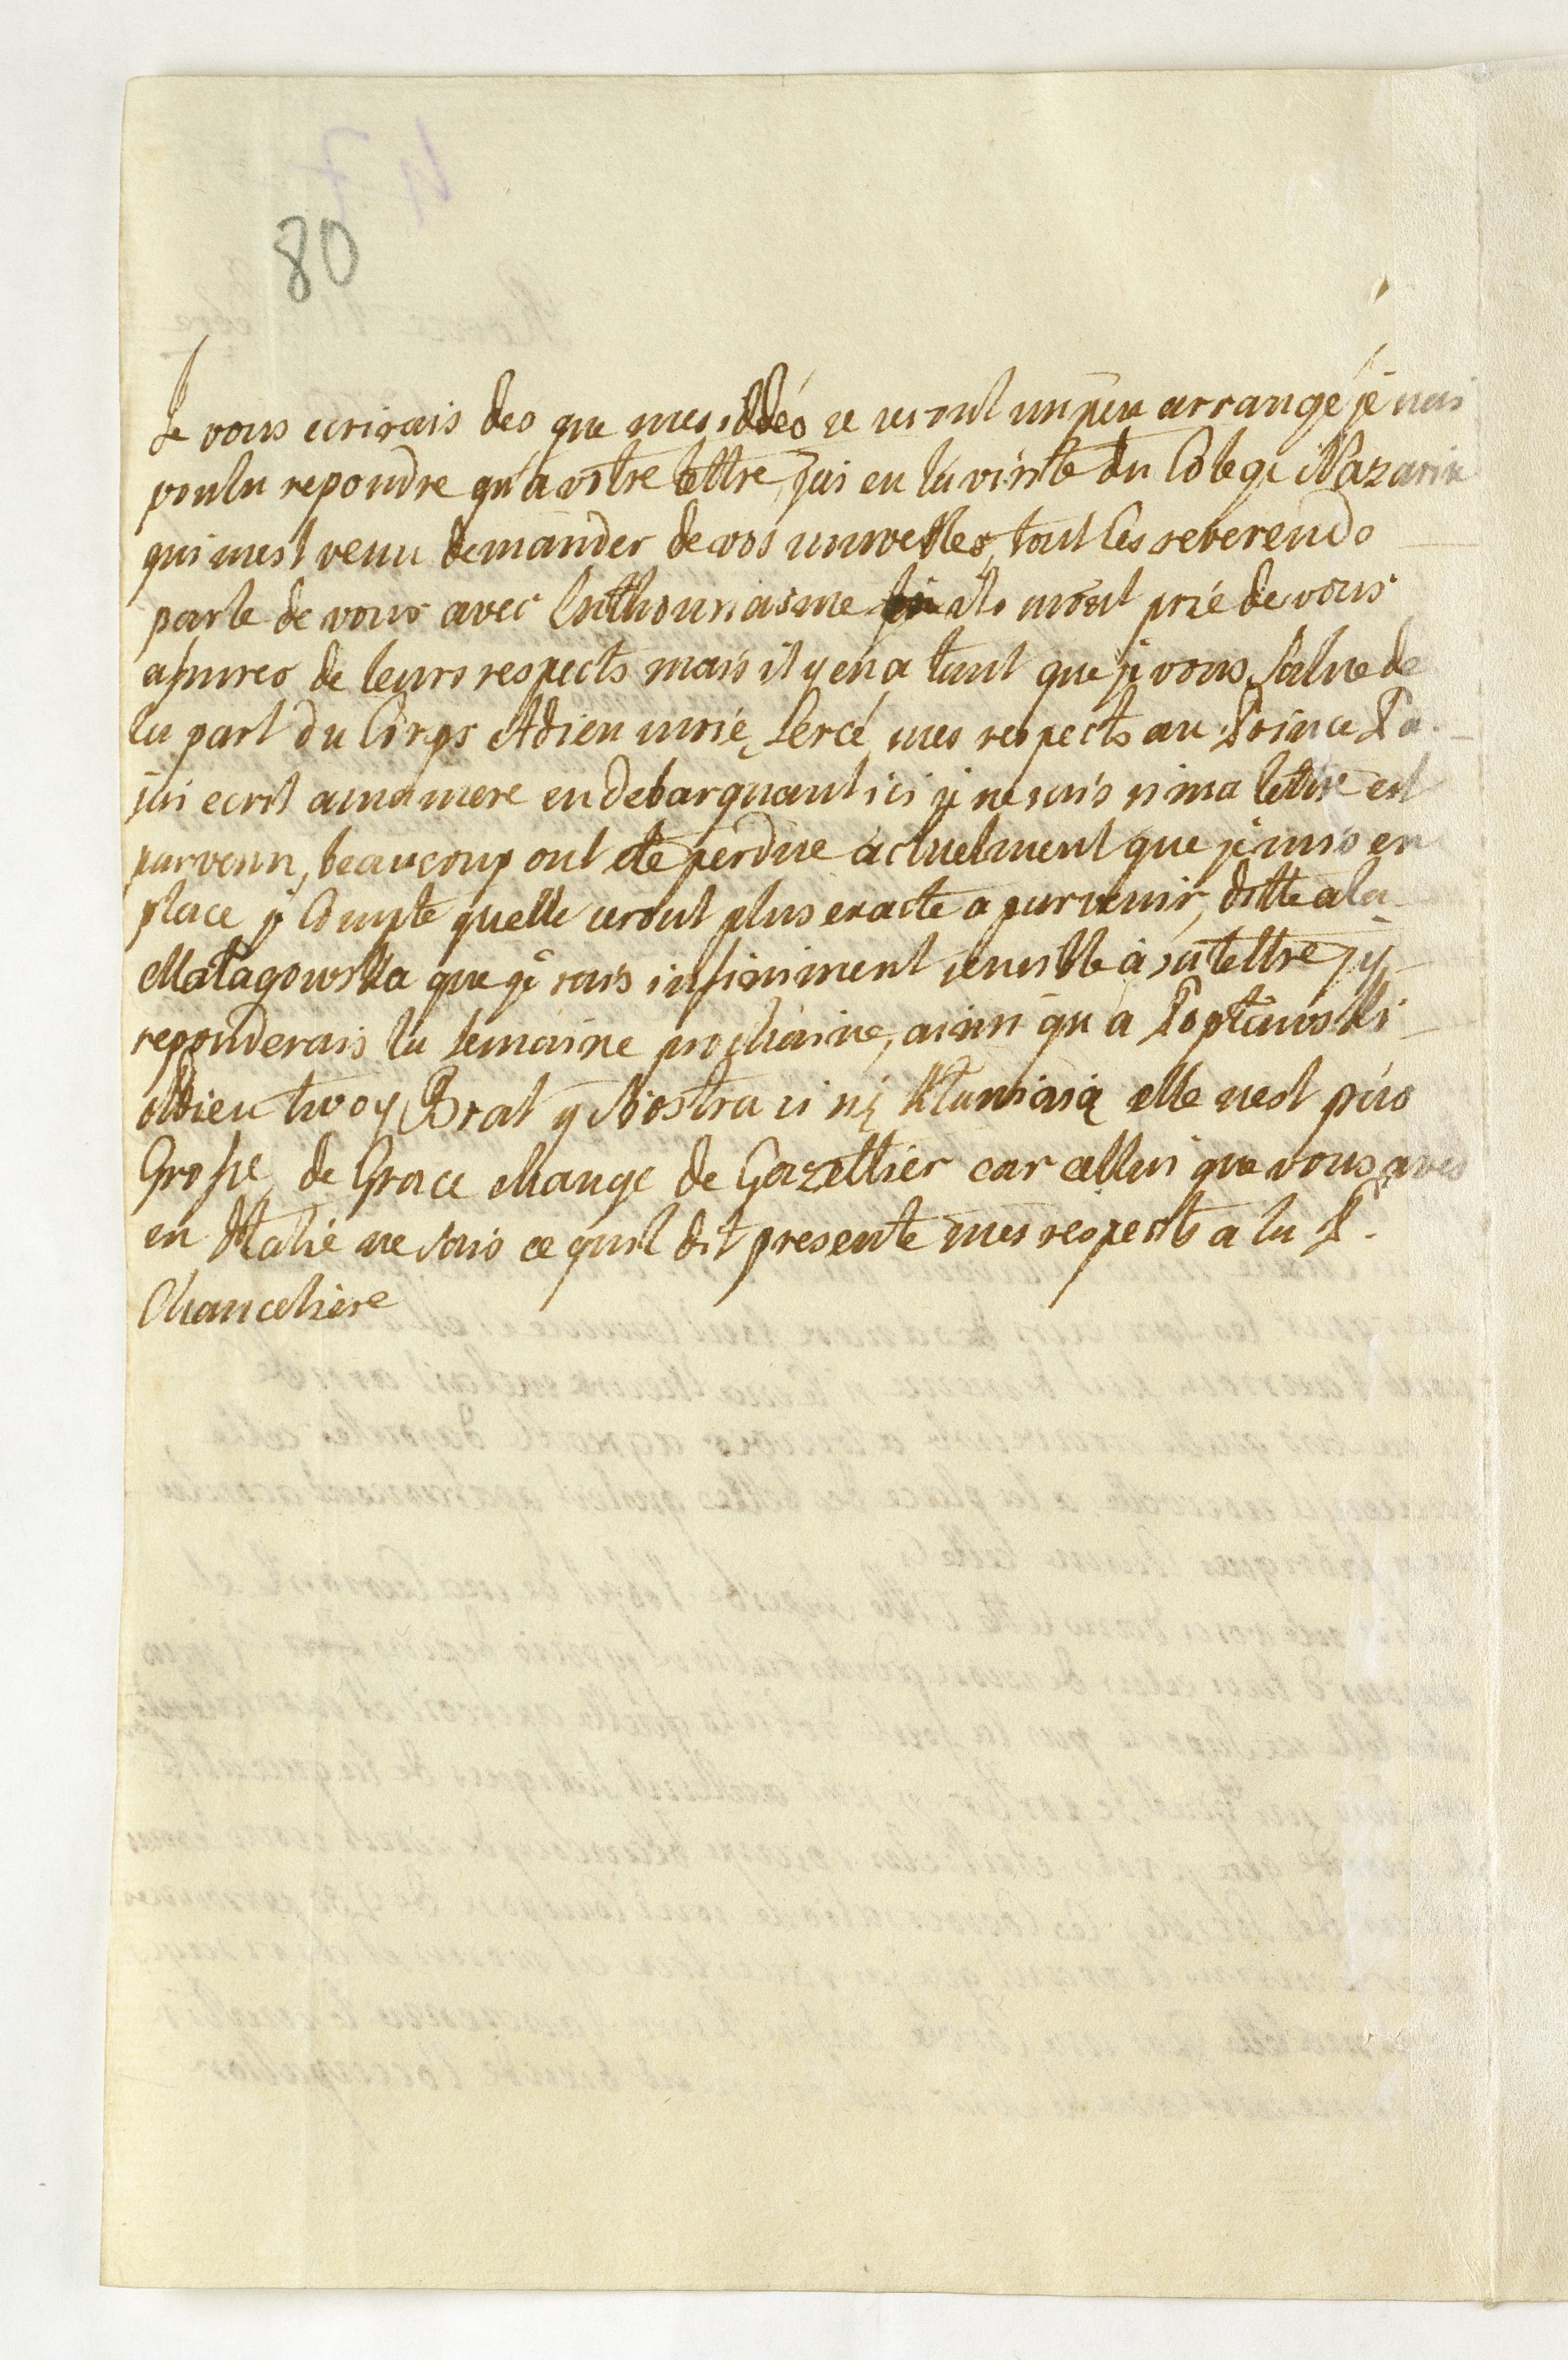 80
Je vous ecrirais des que mes iddés se seront un peu arrangé je nai
voulu repondre qu'a votre lettre, jai eu la visite du Colege Nazarin
qui mest venu demander de vos nouvelles, tout les reverends
parle de vous avec Enthousiasme ils mont prié de vous
assurer de leurs respects mais il y en a tant que je vous Salue de
la part du Corps Adieu mes respects au Prince Pa.
jai ecrit a ma mere en debarquant ici je ne sais si ma lettre est
parvenu, beaucoup ont eté perdue actuelment que je suis en
place je Compte quelle seront plus exacte a parvenir, ditte a la
Małagowska que je suis infiniment sensible à sa lettre j'y
reponderais la Semaine prochaine, ainsi qu'a Popławski
Adieu twoy Brat y Siostra ci się kłaniaią elle nest pas
Grosse, de Grace change de Gazettier car cellui que vous avés
en Italie ne sais ce quil dit presente mes respects a la P.
Chanceliere